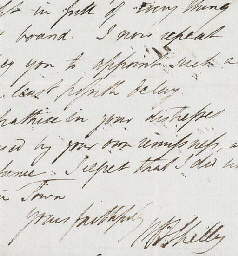 in spite of every thing
board. I now repeat
you to appoint such a
least possible delay
pathise in your distresses
by your own remissness, a
I regret that I did
Town
yours faithfully
PBShelley